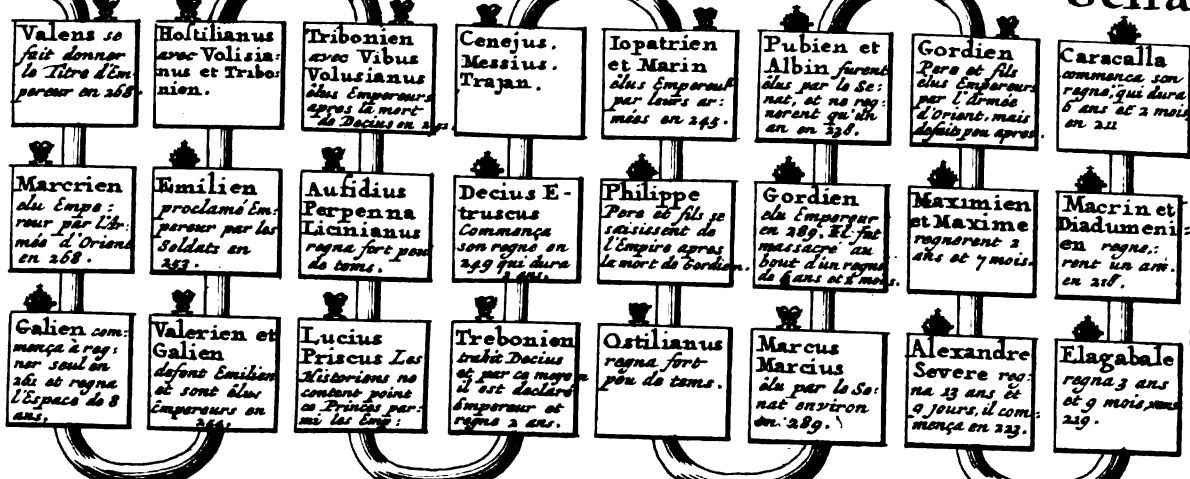 Valens se
fait donner
le Titre d'Em
pereur en 268.
Hostilianus
avec Volisia-
nus et Tribo-
nien.
Tribonien
avec Vibus
Volusianus
êlus Empereurs
apres la mort
de Decius en
Cenejus.
Messius.
Trajan.
Iopatrien
et Marin
êlus Empereurs
par leurs ar:
mées en 245.
Pubien et
Albin furent
êlus par le Se:
nat, et ne reg:
nerent qu'un
an en 238.
Gordien
Pere et fils
elus Empereurs
par l'Armée
d'Orient, mais
defaits peu apres.
Caracalla
commenca son
regne, qui dura
6 ans et 2 mois,
en 211
Marcrien
elu Empe:
reur par l'Ar:
mée d'Orient
en 268.
Emilien
proclamé Em:
pereur par les
Soldats en
253.
Aufidius
Perpenna
Licinianus
regna fort peu
de tems.
Decius E-
truscus
Commença
son regne en
249 qui dura
2 ans.
Philippe
Pere et fils se
saisissent de
l'Empire apres
la mort de Gordien.
Gordien
elu Empereur
en 289. Il fut
massacré au
bout d'un regne
de 6 ans et 2 mois.
Maximien
et Maxime
regnerent 2
ans et 7 mois.
Macrin et
Diadumeni:
en regne,:
rent un an.
en 218.
Galien com:
mença à reg:
ner seul en
261 et regna
l'Espace de 8
ans.
Valerien et
Galien
defont Emilien
et sont êlus
Empereurs en
Lucius
Priscus Les
Historiens ne
content point
ce Princes par:
mi les Emp:
Trebonien
trahit Decius
et par ce moyen
il est declaré
Empereur et
regne 2 ans.
Ostilianus
regna fort
peu de tems.
Marcus
Marcius
êlu par le Se:
nat environ
en 289.
Alexandre
Severe reg:
na 13 ans et
9 jours, il com:
mença en 223.
Elagabale
regna 3 ans
et 9 mois,
219.